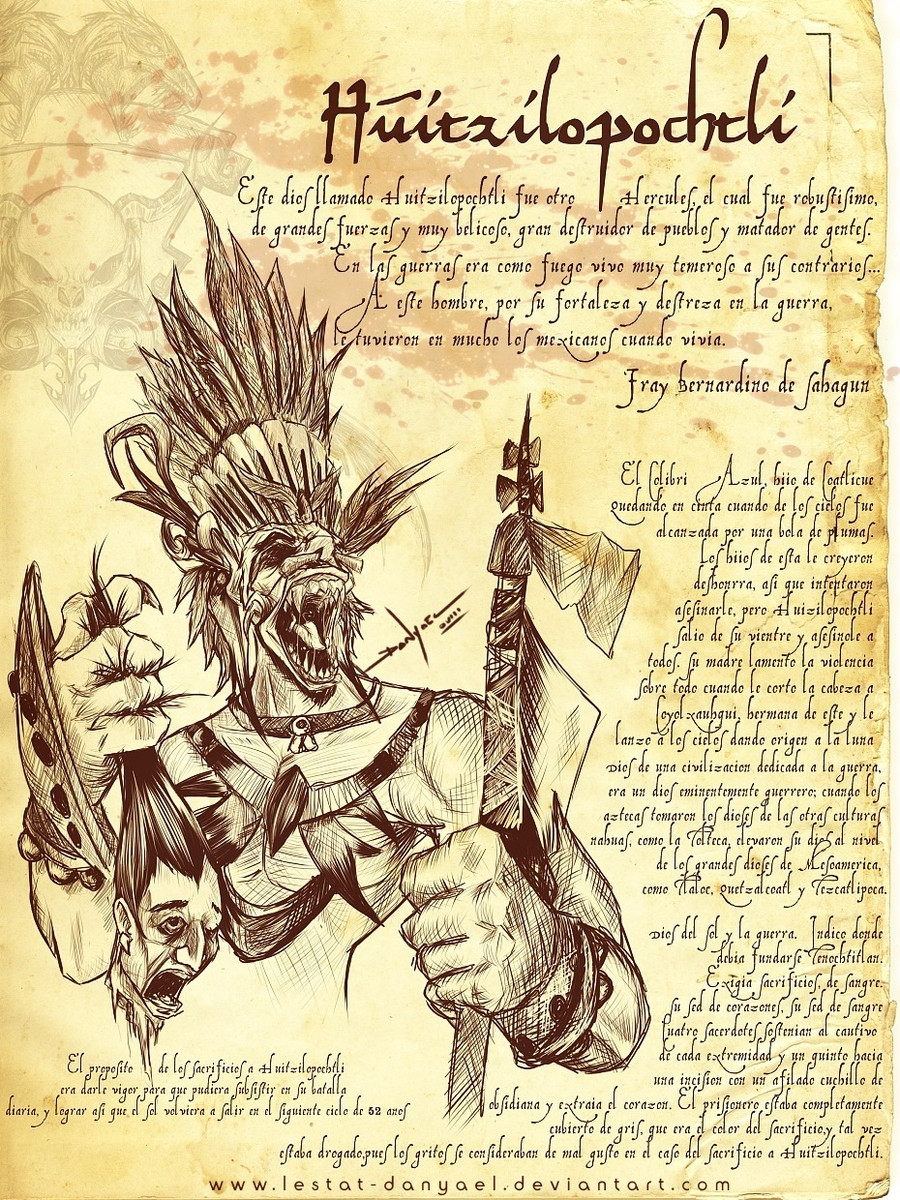 Huitzilopochtli
Este dios llamado Huitzilopochtli fue otro Hercules, el cual fue robustisimo,
de grandes fuerzas y muy belicoso, gran destruidor de pueblos y matador de gentes.
En las guerras era como fuego vivo muy temeroso a sus contrarios...
A este hombre, por su fortaleza y destreza en la guerra,
le tuvieron en mucho los mexicanos cuando vivia.
Fray Bernardino de Sahagun
El Colibri Azul, hijo de Coatlicue
quedando en cinta cuando de los cielos fue
alcanzada por una bola de plumas.
Los hijos de esta le creyeron
deshonrra, asi que intentaron
asesinarle, pero Huitzilopochtli
salio de su vientre y asesinole a
todos. su madre lamento la violencia
sobre todo cuando le corto la cabeza a
Coyolxauhqui, hermana de este y le
lanzo a los cielos dando origen a la luna
Dios de una civilizacion dedicada a la guerra,
era un dios eminentemente guerrero; cuando los
aztecas tomaron los dioses de las otras culturas
nahuas, como la Tolteca, elevaron su dios al nivel
de los grandes dioses de Mesoamerica,
como Tlaloc, Quetzalcoatl y Tezcatlipoca.
Dios del sol y la guerra. Indico donde
debia fundarse Tenochtitlan.
Exigia sacrificios, de sangre.
su sed de corazones, su sed de sangre
Cuatro sacerdotes sostenian al cautivo
de cada extremidad y un quinto hacia
una incision con un afilado cuchillo de
obsidiana y extraia el corazon. El prisionero estaba completamente
cubierto de gris, que era el color del sacrificio,y tal vez
estaba drogado,pues los gritos se consideraban de mal gusto en el caso del sacrificio a Huitzilopochtli.
El proposito de los sacrificios a Huitzilopochtli
era darle vigor para que pudiera subsistir en su batalla
diaria, y lograr asi que el sol volviera a salir en el siguiente ciclo de 52 anos
Danyael
2011
www.lestat-danyael.deviantart.com